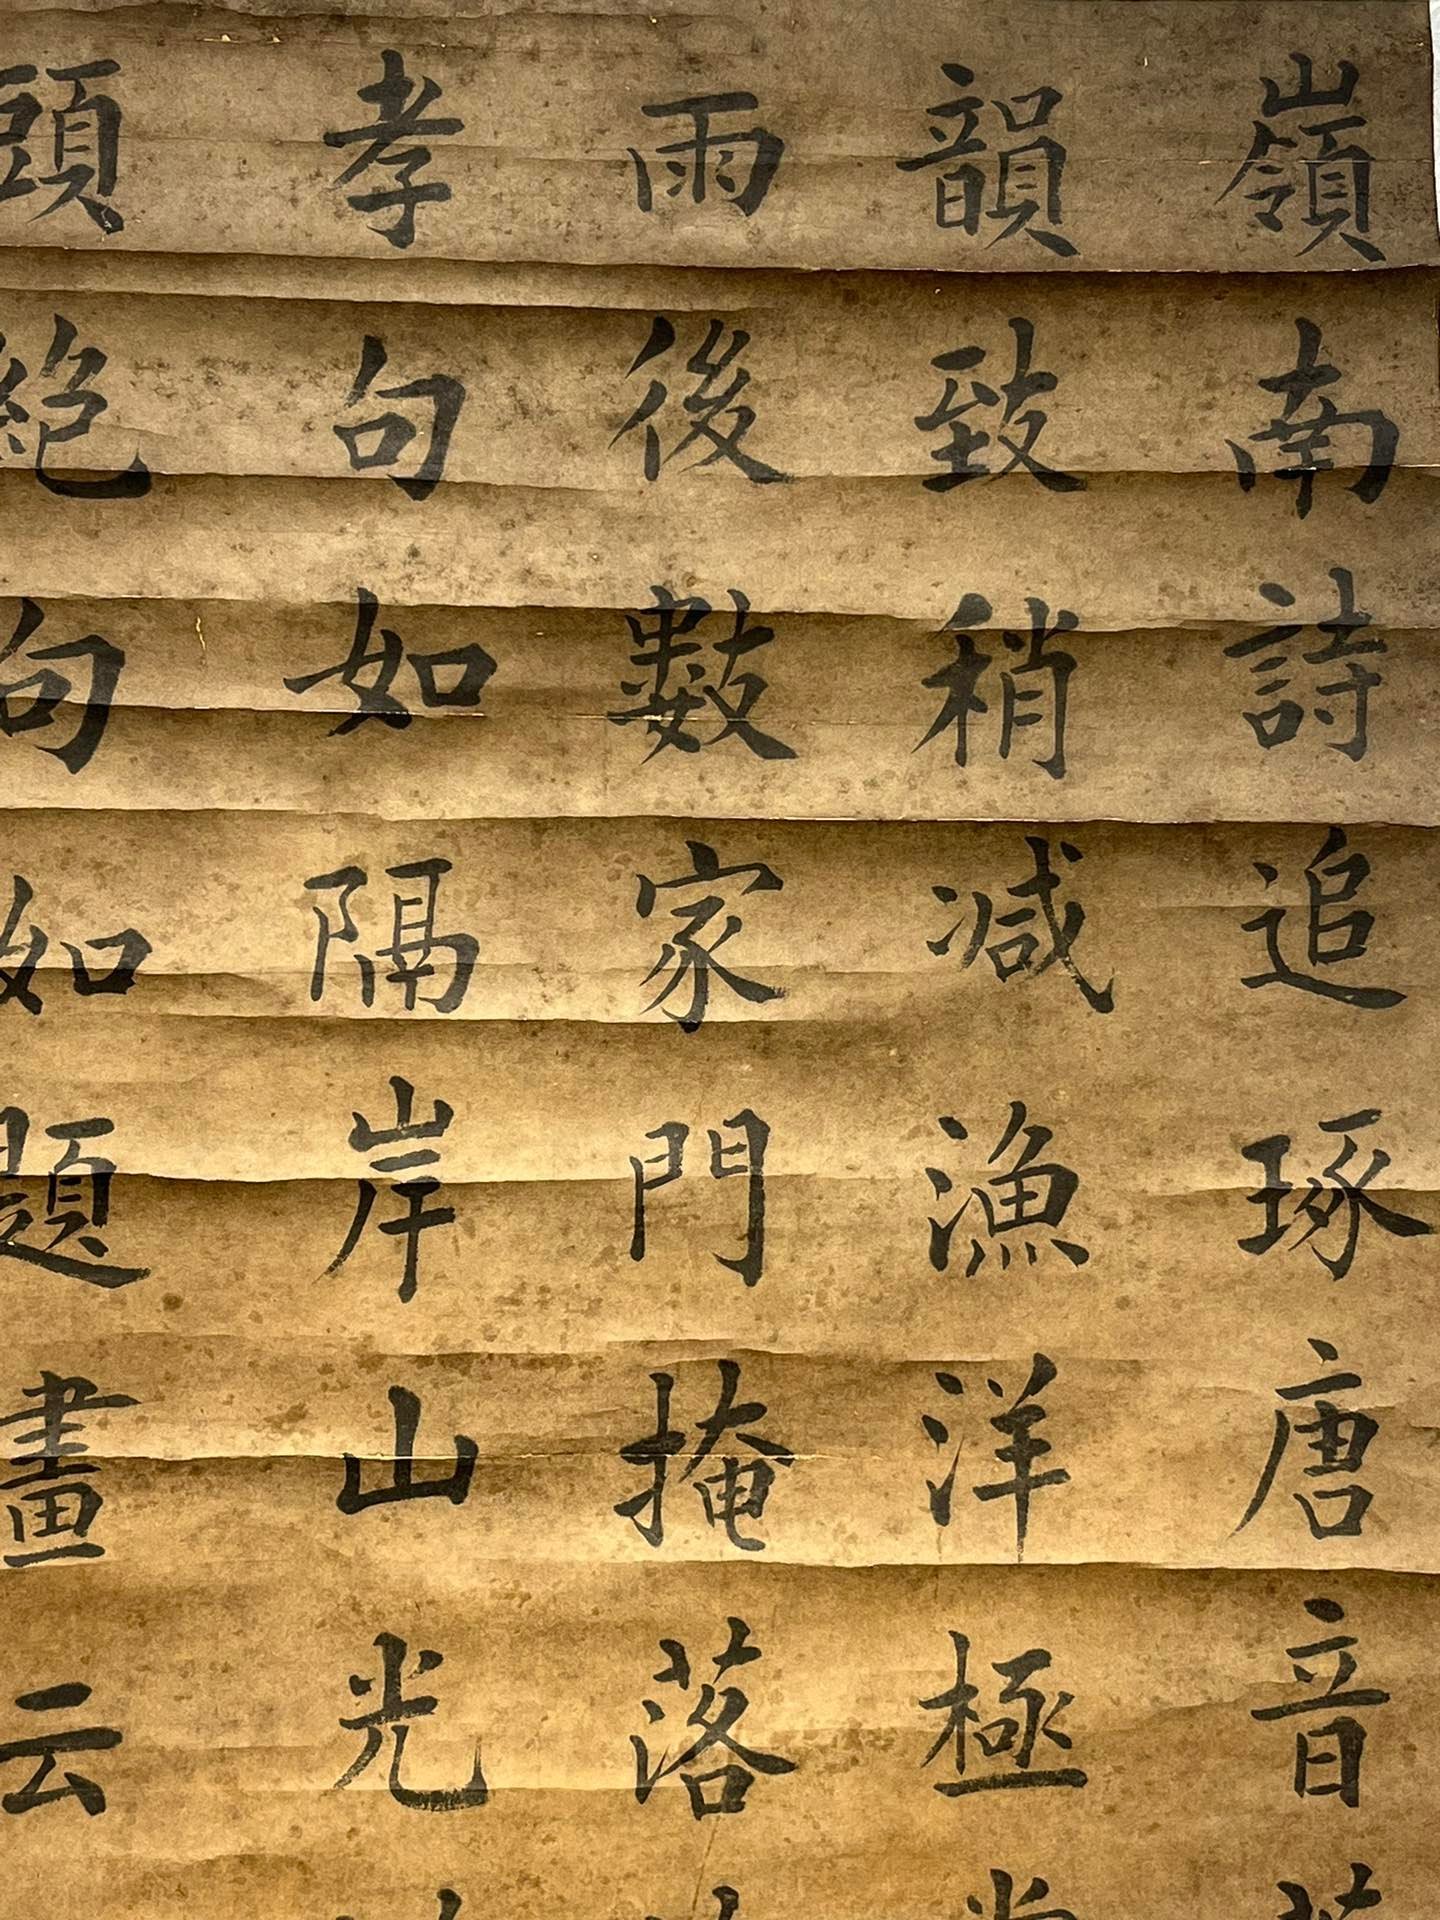 嶺南詩追琢唐音
韻致稍減漁洋極
雨後數家門掩落
孝句如隔岸山光
頭絕句如題畫云